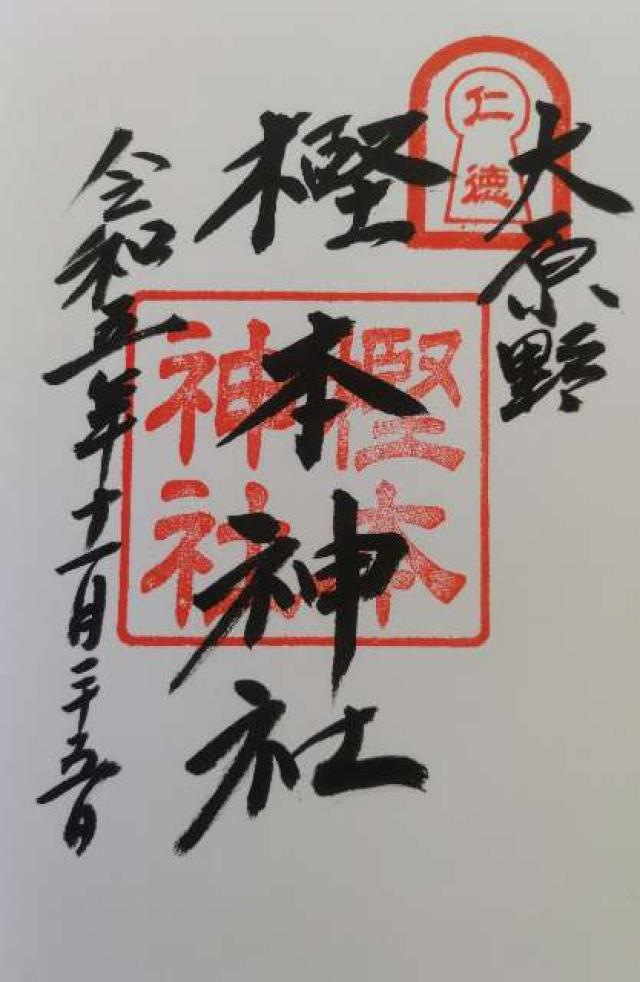 仁徳
大原野
樫本神社
樫本
神社
令和五年十一月二十五日